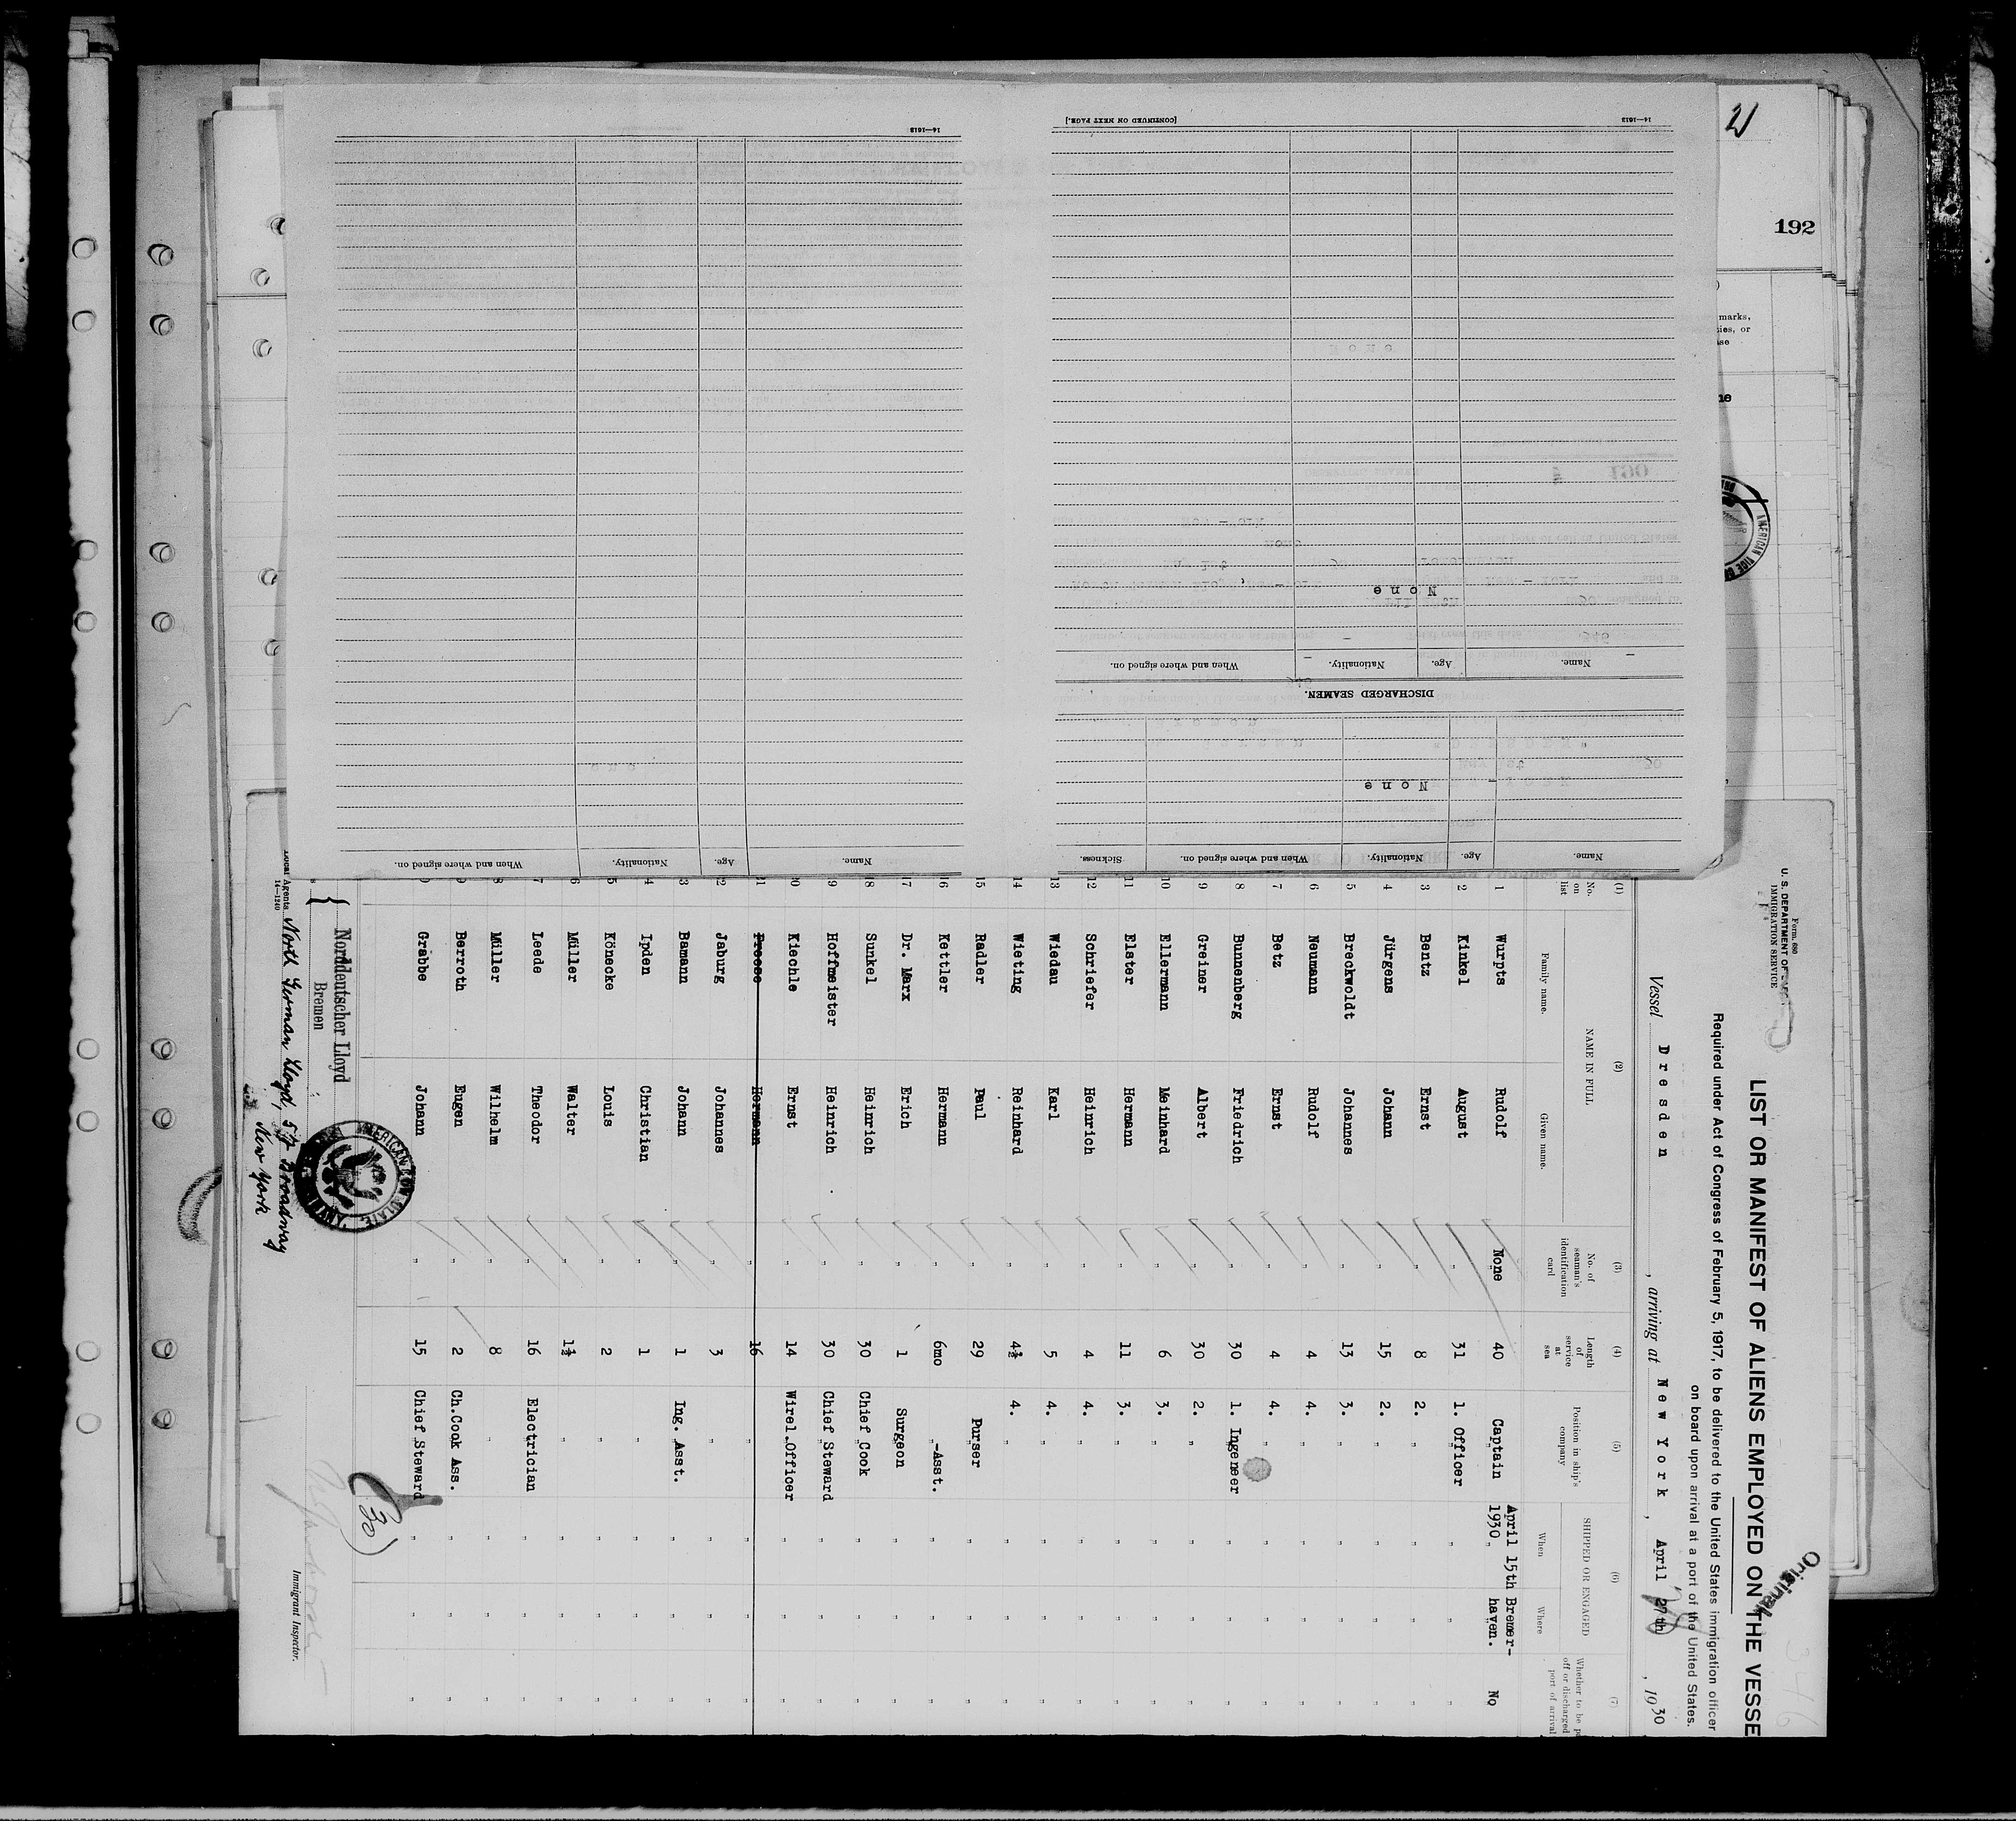 21
192
marks,
ies, or
14—1613
[CONTINUED ON NEXT PAGE.]
14—1613
Name. Age. Nationality. When and where signed on. Sickness.
None
DISCHARGED SEAMEN.
Name. Age. Nationality. When and where signed on.
None
Name. Age. Nationality. When and where signed on.
Form 680
U. S. DEPARTMENT OF
IMMIGRATION SERVICE
Original
346
LIST OR MANIFEST OF ALIENS EMPLOYED ON THE VESSE
Required under Act of Congress of February 5, 1917, to be delivered to the United States immigration officer
on board upon arrival at a port of the United States.
Vessel Dresden , arriving at New York , April 27th , 1930
(1) (2) (3) (4) (5) (6) (7)
No. on list NAME IN FULL No. of seaman's identification card Length of service at sea Position in ship's company SHIPPED OR ENGAGED Whether to be p off or discharged port of arrival
Family name. Given name. When Where
1 Wurpts Rudolf None 40 Captain April 15th 1930 Bremer-haven. No
2 Kinkel August " 31 1. Officer " " "
3 Bentz Ernst " 8 2. " " " "
4 Jürgens Johann " 15 2. " " " "
5 Breckwoldt Johannes " 13 3. " " " "
6 Neumann Rudolf " 4 4. " " " "
7 Betz Ernst " 4 4. " " " "
8 Bunnenberg Friedrich " 30 1. Ingeneer " " "
9 Greiner Albert " 30 2. " " " "
10 Ellermann Meinhard " 6 3. " " " "
11 Elster Hermann " 11 3. " " " "
12 Schriefer Heinrich " 4 4. " " " "
13 Wiedau Karl " 5 4. " " " "
14 Wieting Reinhard " 4½ 4. " " " "
15 Radler Paul " 29 Purser " " "
16 Kettler Hermann " 6mo "-Asst. " " "
17 Dr. Marx Erich " 1 Surgeon " " "
18 Sunkel Heinrich " 30 Chief Cook " " "
19 Hoffmeister Heinrich " 30 Chief Steward " " "
20 Kiechle Ernst " 14 Wirel.Officer " " "
21 Preese Hermann " 16 " " " "
22 Jaburg Johannes " 3 " " " "
23 Bamann Johann " 1 Ing. Asst. " " "
24 Ipden Christian " 1 " " " "
25 Könecke Louis " 2 " " " "
26 Müller Walter " 1½ " " " "
27 Leede Theodor " 16 Electrician " " "
28 Müller Wilhelm " 8 " " " "
29 Berroth Eugen " 2 Ch.Cook Ass. " " "
Grabbe Johann " 15 Chief Steward " " "
(30)
Norddeutscher Lloyd
Bremen
Local Agents North German Lloyd, 57 Broadway
New York
14—1240
Immigrant Inspector.